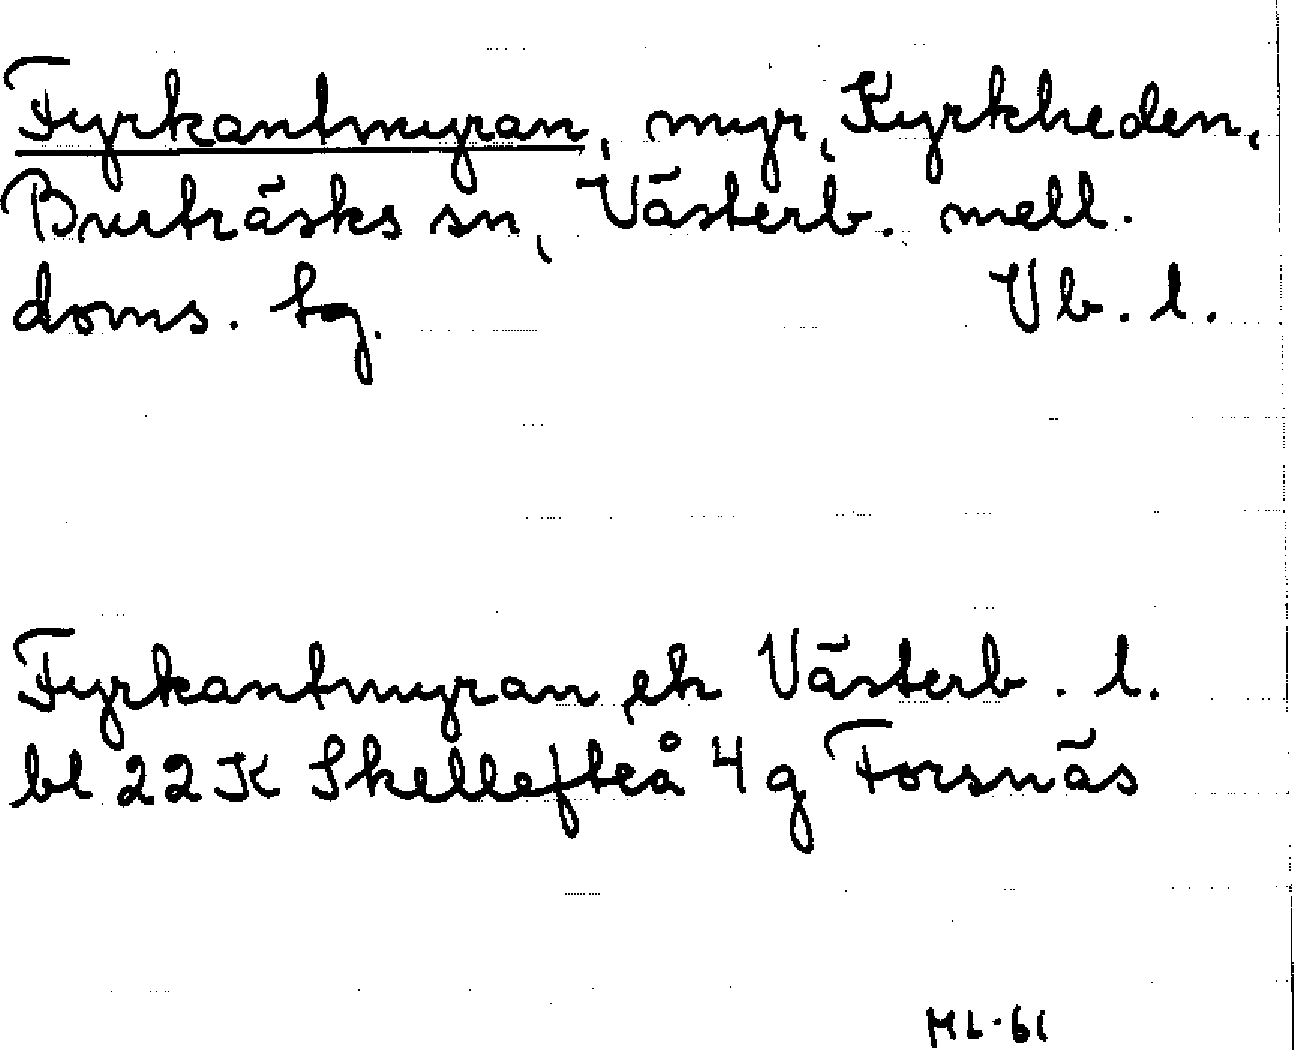 Fyrkantmyran, myr, Kyrkheden,
Burträsks sn, Västerb. mell.
doms. sg. Vb. l.
Fyrkantmyran ek Västerb. l.
bl 22 K Skellefteå 4 g Forsnäs
ML-61